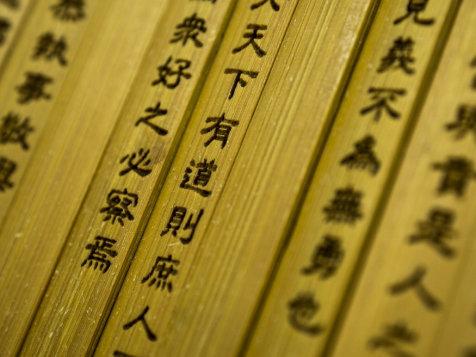 與貴是人之
見義不為無勇也
天下有道則庶人
眾好之必察焉
恭執事敬與